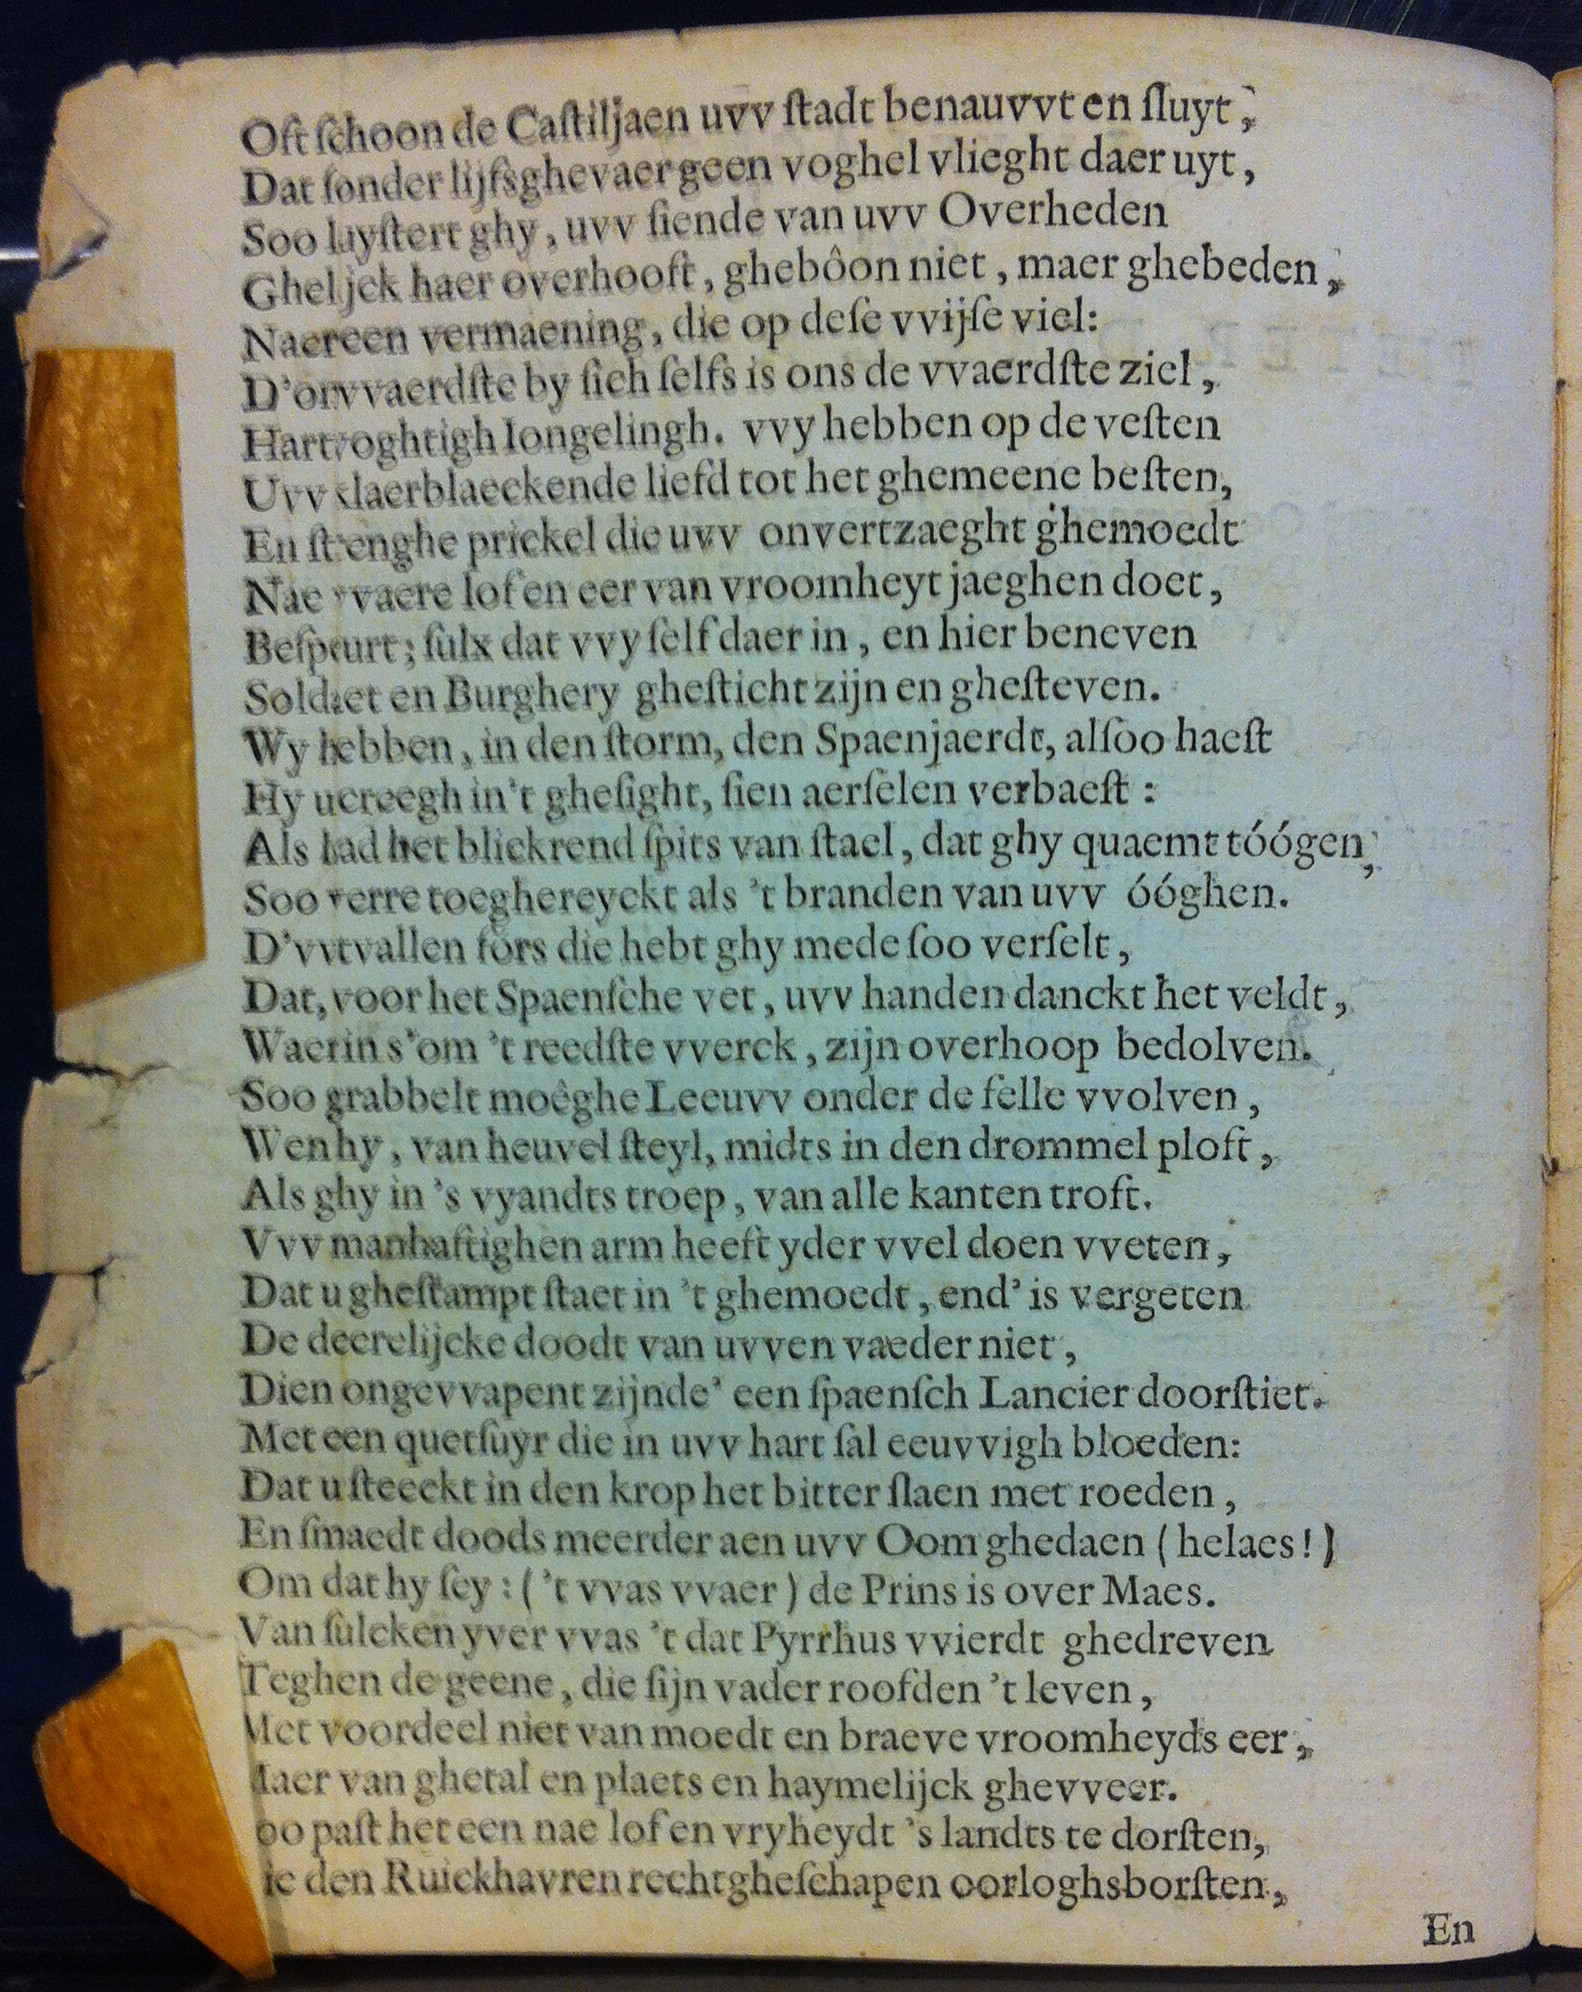 Oft ſchoon de Caſtiljaen uvv ſtadt benauvvt en ſluyt,
Dat ſonder lijfsghevaer geen voghel vlieght daer uyt,
Soo luyſtert ghy, uvv ſiende van uvv Overheden
Gheljck haer overhooft, ghebôon niet, maer ghebeden,
Naer een vermaening, die op deſe vvijſe viel:
D'onvvaerdſte by ſich ſelfs is ons de vvaerdſte ziel,
Hartroghtigh Iongelingh. vvy hebben op de veſten
Uvv klaerblaeckende liefd tot het ghemeene beſten,
En ſtrenghe prickel die uvv onvertzaeght ghemoedt
Nae vvaere lof en eer van vroomheyt jaeghen doet,
Beſpeurt; ſulx dat vvy ſelf daer in, en hier beneven
Soldaet en Burghery gheſticht zijn en gheſteven.
Wy hebben, in den ſtorm, den Spaenjaerdt, alſoo haeſt
Hy u creegh in't gheſight, ſien aerſelen verbaeſt:
Als had het blickrend ſpits van ſtael, dat ghy quaemt tóógen,
Soo verre toeghereyckt als 't branden van uvv óóghen.
D'vvtvallen fórs die hebt ghy mede ſoo verſelt,
Dat, voor het Spaenſche vet, uvv handen danckt het veldt,
Waer in s'om 't reedſte vverck, zijn overhoop bedolven.
Soo grabbelt moêghe Leeuvv onder de felle vvolven,
Wen hy, van heuvel ſteyl, midts in den drommel ploft,
Als ghy in 's vyandts troep, van alle kanten troft.
Vvv manhaftighen arm heeft yder vvel doen vveten,
Dat u gheſtampt ſtaet in 't ghemoedt, end' is vergeten
De deerelijcke doodt van uvven vaeder niet,
Dien ongevvapent zijnde' een ſpaenſch Lancier doorſtiet.
Met een quetſuyr die in uvv hart ſal eeuvvigh bloeden:
Dat u ſteeckt in den krop het bitter ſlaen met roeden,
En ſmaedt doods meerder aen uvv Oom ghedaen (helaes!)
Om dat hy ſey: ('t vvas vvaer) de Prins is over Maes.
Van ſulcken yver vvas 't dat Pyrrhus vvierdt ghedreven
Teghen de geene, die ſijn vader roofden 't leven,
Met voordeel niet van moedt en braeve vroomheyds eer,
Maer van ghetal en plaets en haymelijck ghevveer.
oo paſt het een nae lof en vryheydt 's landts te dorſten,
ie den Ruickhavren rechtgheſchapen oorloghsborſten,
En